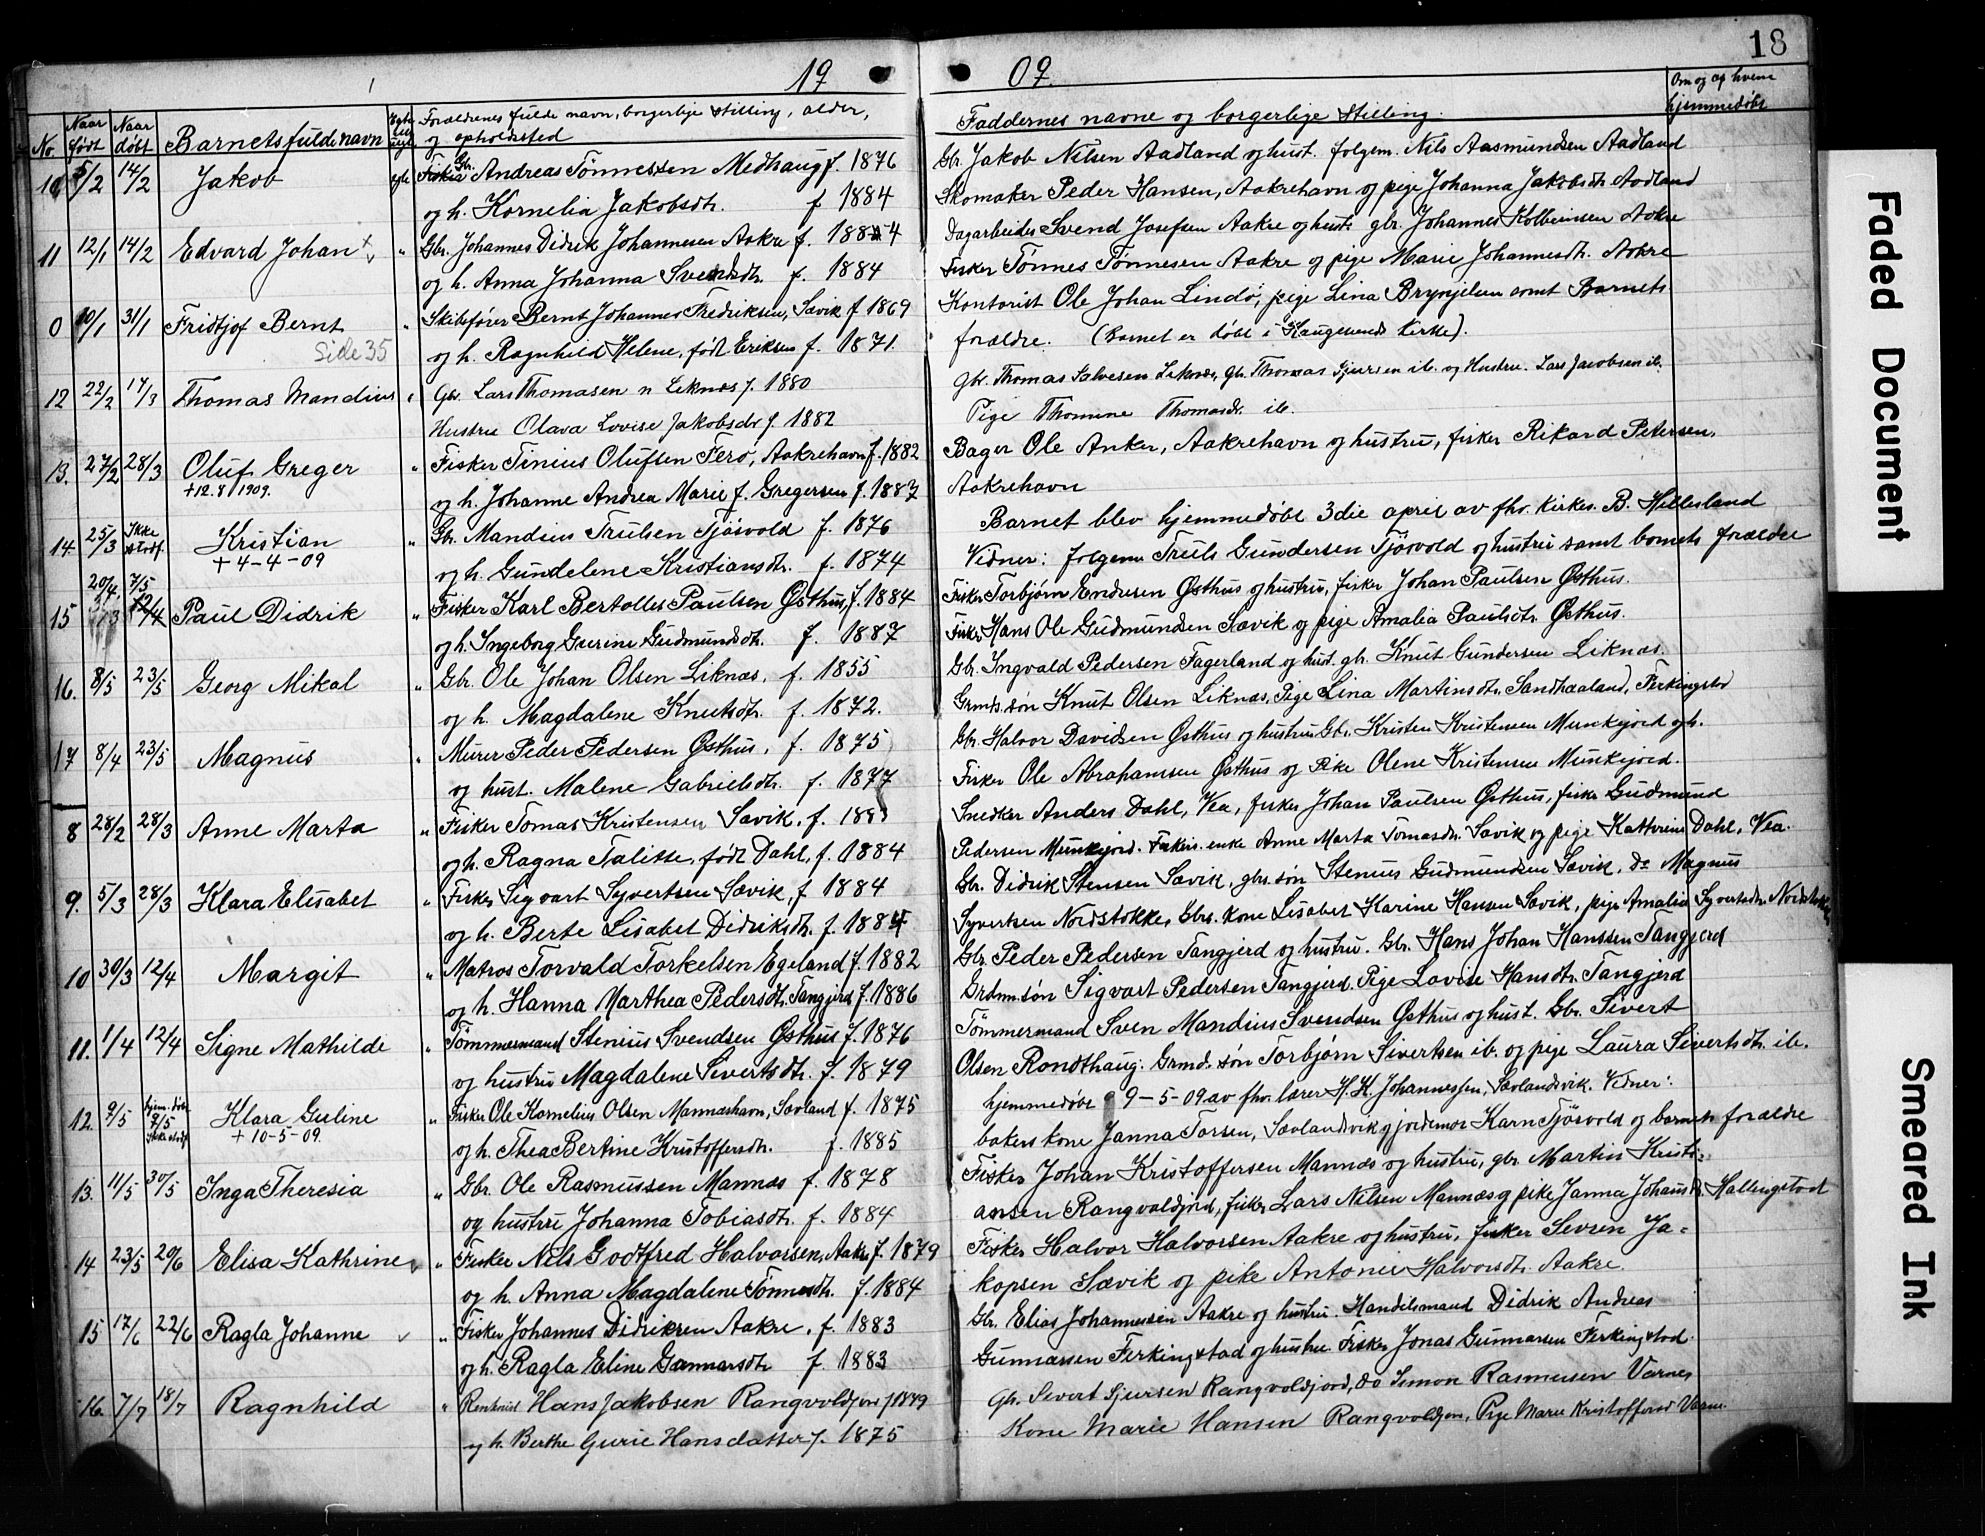 18
19 09.
No. Naar født Naar døbt Barnets fulde navn Forældrenes fulde navn, borgerlige stilling, alder, og opholdssted
Faddernes navne og borgerlige stilling. Om og af hvem hjemmedøbt
10 5/2 14/2 Jakob egte Gbr. Andreas Tønnessen Medhaug f. 1876
og h. Kornelia Jakobsdtr. f 1884
Gbr. Jakob Nilsen Aadland og hust. folgem. Nils Aasmundsen Aadland
Skomaker Peder Hansen, Aakrehavn og pige Johanna Jakobsdtr Aadland
11 12/1 14/2 Edvard Johan " Gbr. Johannes Didrik Johannesen Aakre f. 1884
og h. Anna Johanna Svendsdtr. f. 1884
Dagarbeider Svend Josefsen Aakre og hust. gbr. Johannes Kolbeinsen Aakre
Fisker Tönnes Tönnesen Aakre og pige Marie Johannesdtr. Aakre
0 10/1 31/1 Fridtjof Bernt " Skibsfører Bernt Johannes Fredriksen, Sævik f 1869
Side 35
og h. Ragnhild Helene, født Eriksen f. 1871.
Kontorist Ole Johan Lindö, pige Lina Brynjelsen samt Barnets
forældre. (Barnet er døbt i Haugesunds Kirke).
12 22/2 17/3 Thomas Mandius " Gbr. Lars Thomasen n Liknes f. 1880
Hustru Olava Lovise Jakobsdr f 1882
Gbr. Thomas Salvesen Liknes, Gb. Thomas Sjursen ib. og Hustru. Lars Jacobsen ib.
Pige Thomine Thomasdr. ib.
13. 27/2 28/3 Oluf Greger " Fisker Tinius Olufsen Ferö, Aakrehavn f. 1882
+12.8 1909.
og h. Johanne Andrea Marie f. Gregersen f. 1887
Bager Ole Anker, Aakrehavn og hustru, fisker Rikard Petersen,
Aakrehavn
14. 25/3 Ikke stadf. Kristian " Gb. Mandius Trulsen Tjösvold f. 1876
+ 4-4-09
og h. Gundelene Kristiansdtr. f. 1874
Barnet blev hjemmedøbt 3die april av fhv. kirkes. B. Hillesland
Vidner: folgem Truls Gundersen Tjösvold og hustru samt barnets forældre
15 20/4 7/5 Paul Didrik " Fisker Karl Bertolles Paulsen Østhus, f. 1884
og h. Ingeborg Gurine Gudmundsdtr. f. 1887
Fisker Torbjørn Endresen Østhus og hustru, fisker Johan Paulsen Østhus.
Fisker Hans Ole Gudmundsen Sævik og pige Amalia Paulsdtr. Østhus.
16. 8/5 23/5 Georg Mikal " Gbr. Ole Johan Olsen Liknæs. f. 1855
og h. Magdalene Knutsdtr. f. 1872.
Gb. Ingvald Pedersen Fagerland og hust. gb. Knut Gundersen Liknæs.
Grmds. søn Knut Olsen Liknæs, Pige Lina Martinsdtr. Sandhaaland, Ferkingstad
17 8/4 23/5 Magnus " Murer Peder Pedersen Østhus, f. 1875
og hust. Malene Gabrielsdtr. f. 1877
Gb. Halvor Davidsen Østhus og hustru Gb. Kristen Kristensen Munkejord og h.
Fisker Ole Abrahamsen Østhus og Pike Olene Kristensen Munkejord.
8 28/2 28/3 Anne Marta " Fisker Tomas Kristensen Sævik. f. 1883
og h. Ragna Talitte, født Dahl, f. 1884
Snedker Anders Dahl, Vea, fisker Johan Paulsen Østhus, fisker Gudmund
Pedersen Munkejord. Fiskers enke Anne Marta Tomasdtr. Sævik og pige Kathrine Dahl, Vea.
9. 5/3 28/3 Klara Elisabet " Fisker Sigvart Syvertsen Sævik, f 1884
og h. Berte Lisabet Didriksdtr. f. 1884
Gbr. Didrik Stensen Sævik, gbs. søn Stenius Gudmundsen Sævik. Do Magnus
Syvertsen Nordstokke, Gbrs. kone Lisabet Karine Hansen Sævik, pige Amalia Syvertsdtr. Nordstokke
10 30/3 12/4 Margit " Matros Torvald Torkelsen Egeland f. 1882
og h. Hanna Marthea Pedersdtr. Tangjerd f. 1886
Gbr. Peder Pedersen Tangjerd og hustru. Gbr. Hans Johan Hanssen Tangjerd
Grdm.søn Sigvart Pedersen Tangjerd. Pige Lovise Hansdtr. Tangjerd
11. 1/4 12/4 Signe Mathilde " Tömmermand Stenius Svendsen Østhus f. 1876
og hustru Magdalene Sivertsdtr. f. 1879
Tömmermand Sven Mandius Svendsen Østhus og hust. Gbr. Sivert
Olsen Rondthaug. Grmd. søn Torbjørn Sivertsen ib. og pige Laura Sivertsdtr. ib.
12. 9/5 hjem. døbt 9/5 Ikke stadf Klara Guline " Fisker Ole Kornelius Olsen Mannæshavn, Sævland f. 1875
+ 10-5-09
og h. Thea Bertine Kristoffersdtr. f. 1885
hjemmedøbt 9-5-09 av fhv. lærer H. K. Johannessen, Sævlandsvik. Vidner:
bakers kone Janna Torsen, Sævlandsvik og jordemor Karn Tjösvold og barnets forældre
13. 11/5 30/5 Inga Theresia " Gbr. Ole Rasmussen Mannæs f. 1878
og hustru Johanna Tobiasdtr. f. 1884
Fisker Johan Kristoffersen Mannæs og hustru, gbr. Martin Kristi-
ansen Rangvaldjord, fisker Lars Nilsen Mannæs og pike Janna Johansdtr. Hallingstad
14 23/5 20/6 Elisa Kathrine " Fisker Nils Godtfred Halvorsen, Aakre f. 1879
og h. Anna Magdalene Tönnesdtr. f. 1884
Fisker Halvor Halvorsen Aakre og hustru, fisker Sevren Ja-
kopsen Sævik og pike Antonie Halvorsdtr. Aakre.
15 17/6 22/6 Ragla Johanne " Fisker Johannes Didriksen Aakre, f. 1883
og h. Ragla Eline Gunnarsdtr f. 1883
Gbr. Elias Johannessen Aakre og hustru. Handelsmand Didrik Andreas
Gunnarsen Ferkingstad og hustru. Fisker Jonas Gunnarsen Ferkingstad.
16. 7/7 18/7 Ragnhild " Hans Jakobsen Rangvoldjord f 1879
og h. Berthe Gurie Hansdatter f. 1875
Gb. Severt Sjursen Rangvoldjord, do Simon Rasmusen Varnes
Kone Marie Hansen Rangvoldjor, Pige Marie Kristoffersd Varne.
Faded Document
Smeared Ink